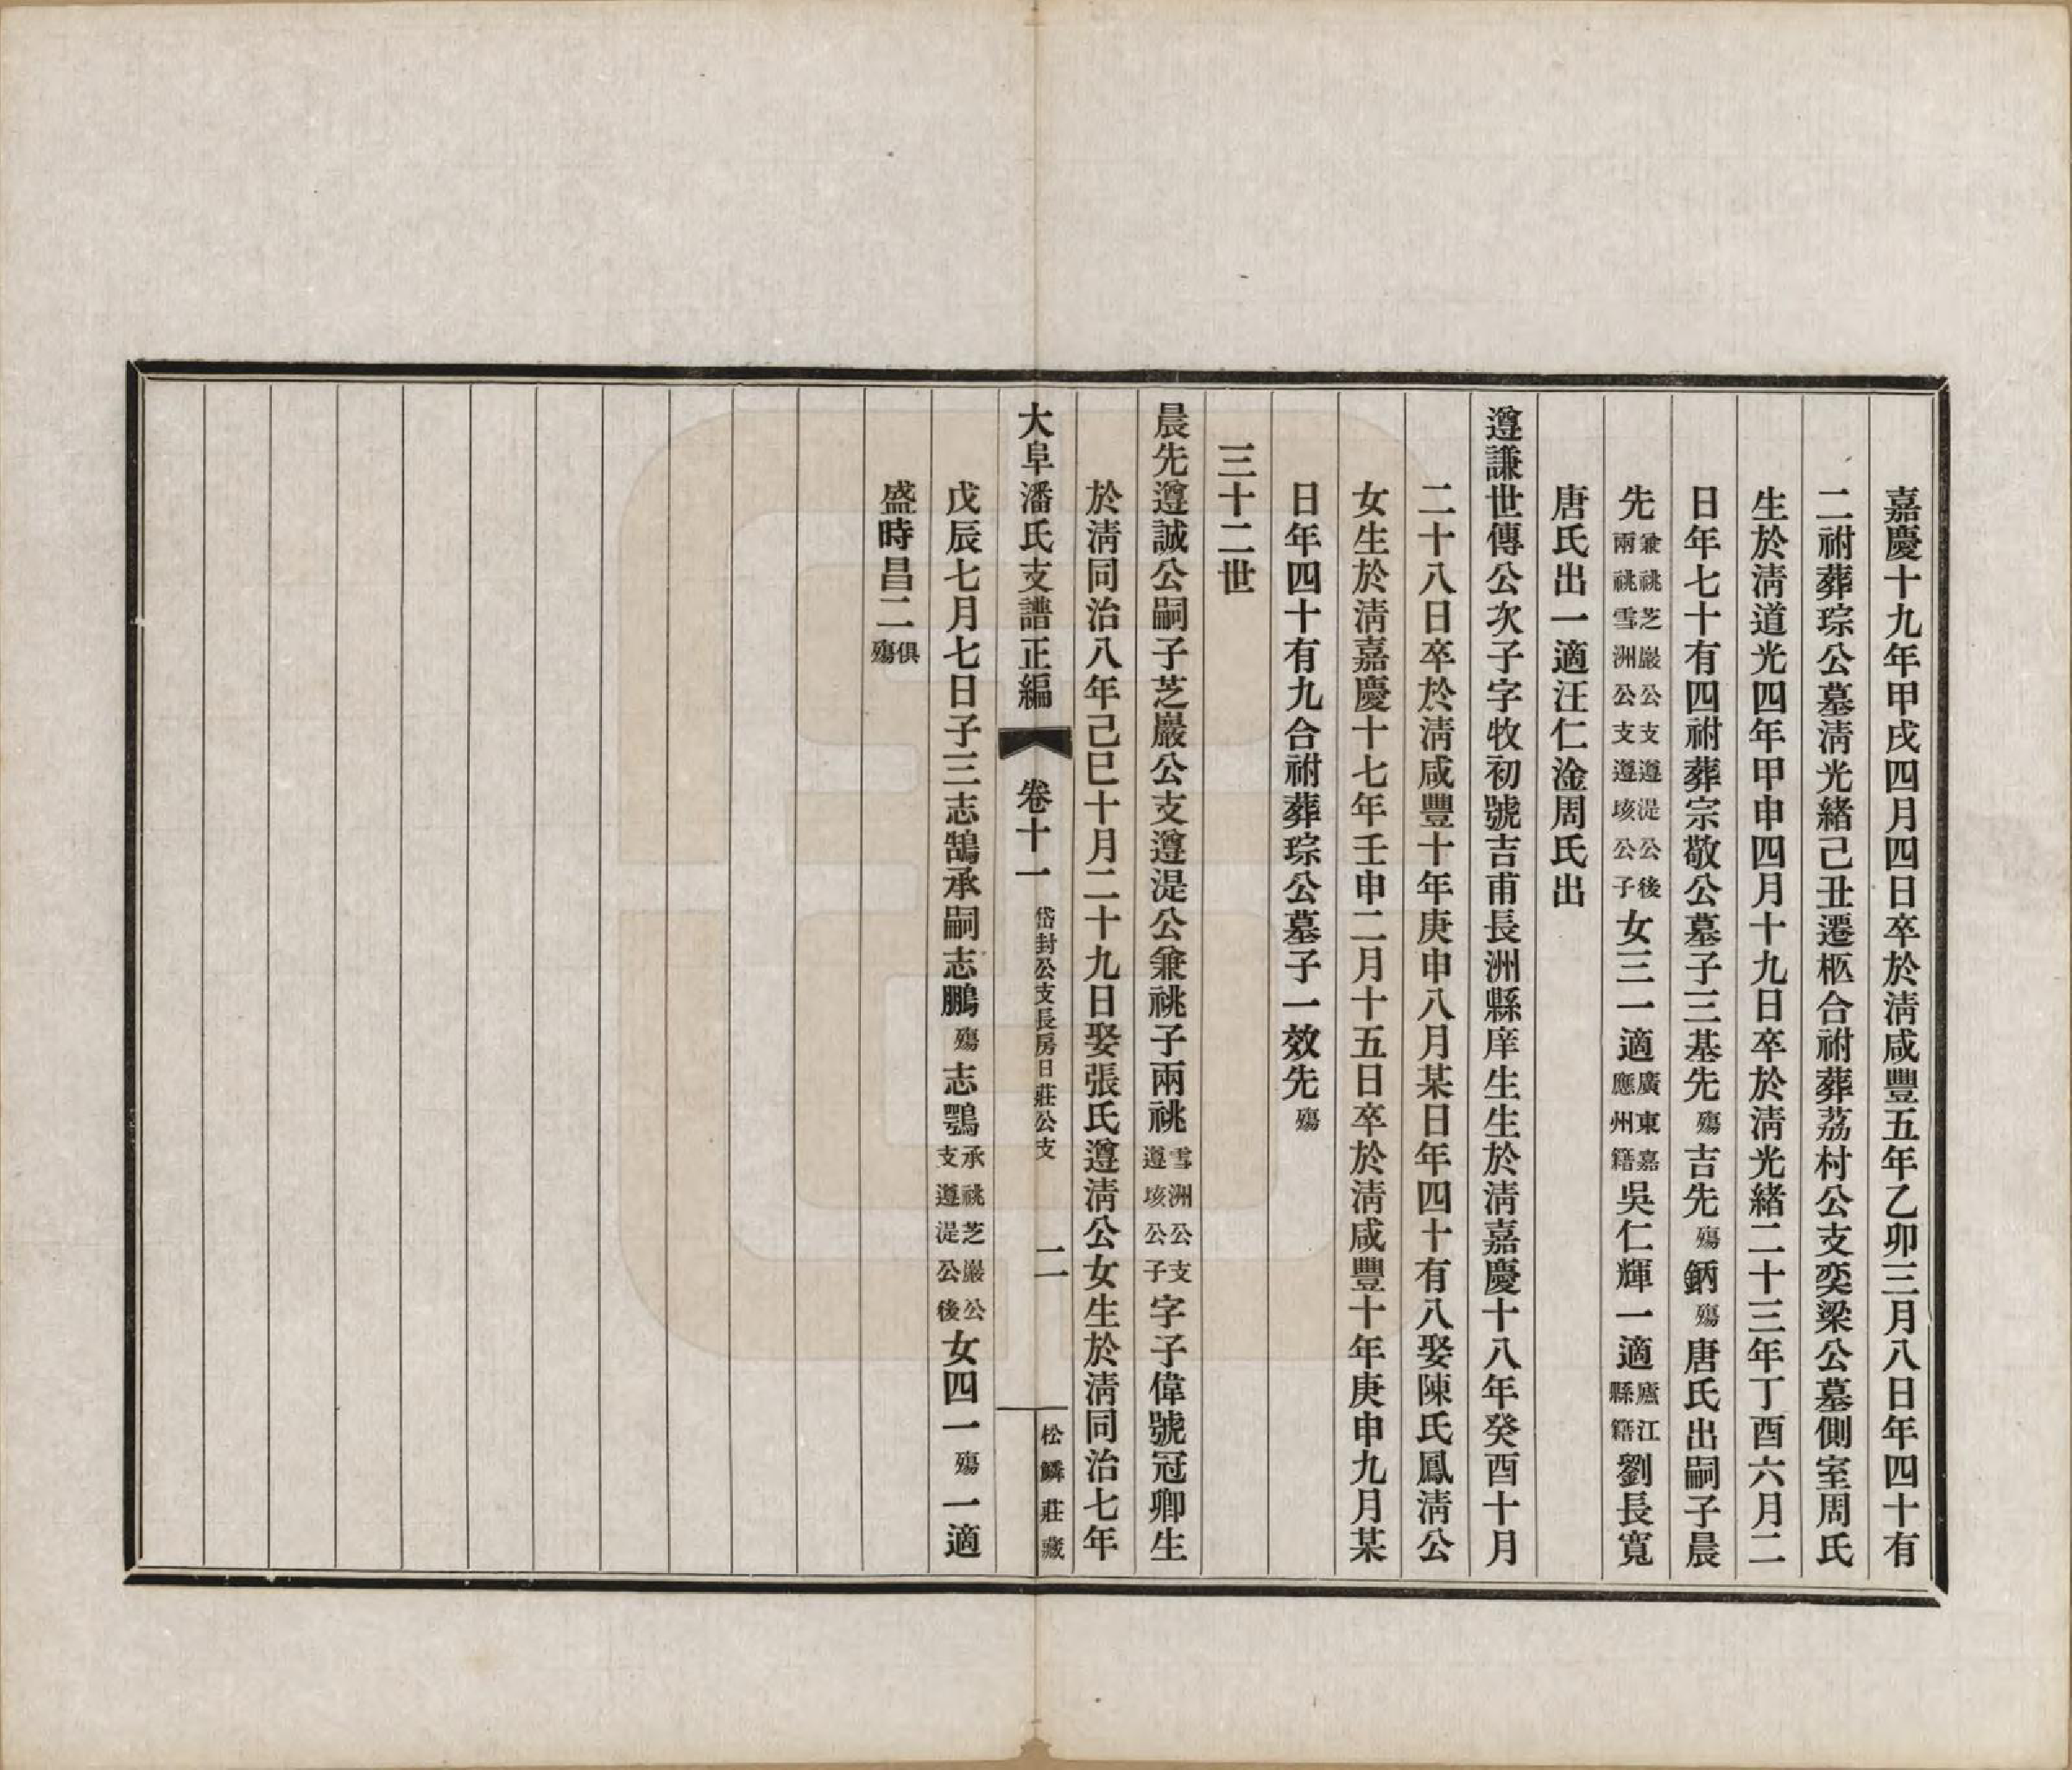 嘉慶十九年甲戌四月四日卒於淸咸豐五年乙卯三月八日年四十有
二祔葬琮公墓淸光緖己丑遷柩合祔葬荔村公支奕梁公墓側室周氏
生於淸道光四年甲申四月十九日卒於淸光緖二十三年丁酉六月二
日年七十有四祔葬宗敬公墓子三基先殤吉先殤鈵殤唐氏出嗣子晨
先兼祧芝巖公支遵湜公後兩祧雪洲公支遵垓公子女三一適廣東嘉應州籍吳仁輝一適廬江縣籍劉長寬
唐氏出一適汪仁淦周氏出
遵謙世傳公次子字牧初號吉甫長洲縣庠生生於淸嘉慶十八年癸酉十月
二十八日卒於淸咸豐十年庚申八月某日年四十有八娶陳氏鳳淸公
女生於淸嘉慶十七年壬申二月十五日卒於淸咸豐十年庚申九月某
日年四十有九合祔葬琮公墓子一效先殤
三十二世
晨先遵誠公嗣子芝巖公支遵湜公兼祧子兩祧雪洲公支遵垓公子字子偉號冠卿生
於淸同治八年己巳十月二十九日娶張氏遵淸公女生於淸同治七年
大阜潘氏支譜正編 卷十一 岱封公支長房日莊公支 二 松鱗莊藏
戊辰七月七日子三志鵠承嗣志鵬殤志鶚承祧芝巖公支遵湜公後女四一殤一適
盛時昌二俱殤